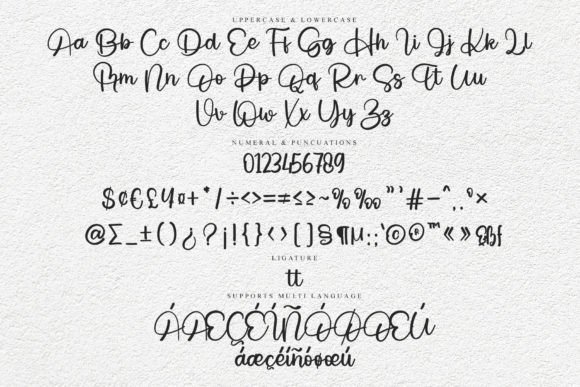 UPPERCASE & LOWERCASE
Aa Bb Cc Dd Ee Ff Gg Hh Ii Jj Kk Ll
Mm Nn Oo Pp Qq Rr Ss Tt Uu
Vv Ww Xx Yy Zz
NUMERAL & PUNCUATIONS
0123456789
$¢€£¥¤+*/÷<>=≠≤≥~%‰”’#–^,.°×
@∑_±()¿?¡!{}‹›[]§¶µ:;‘©®™«»
LIGATURE
tt
SUPPORTS MULTI LANGUAGE
ÁÆÇÉÍÑÓØŒÚ
áæçéíñóøœú